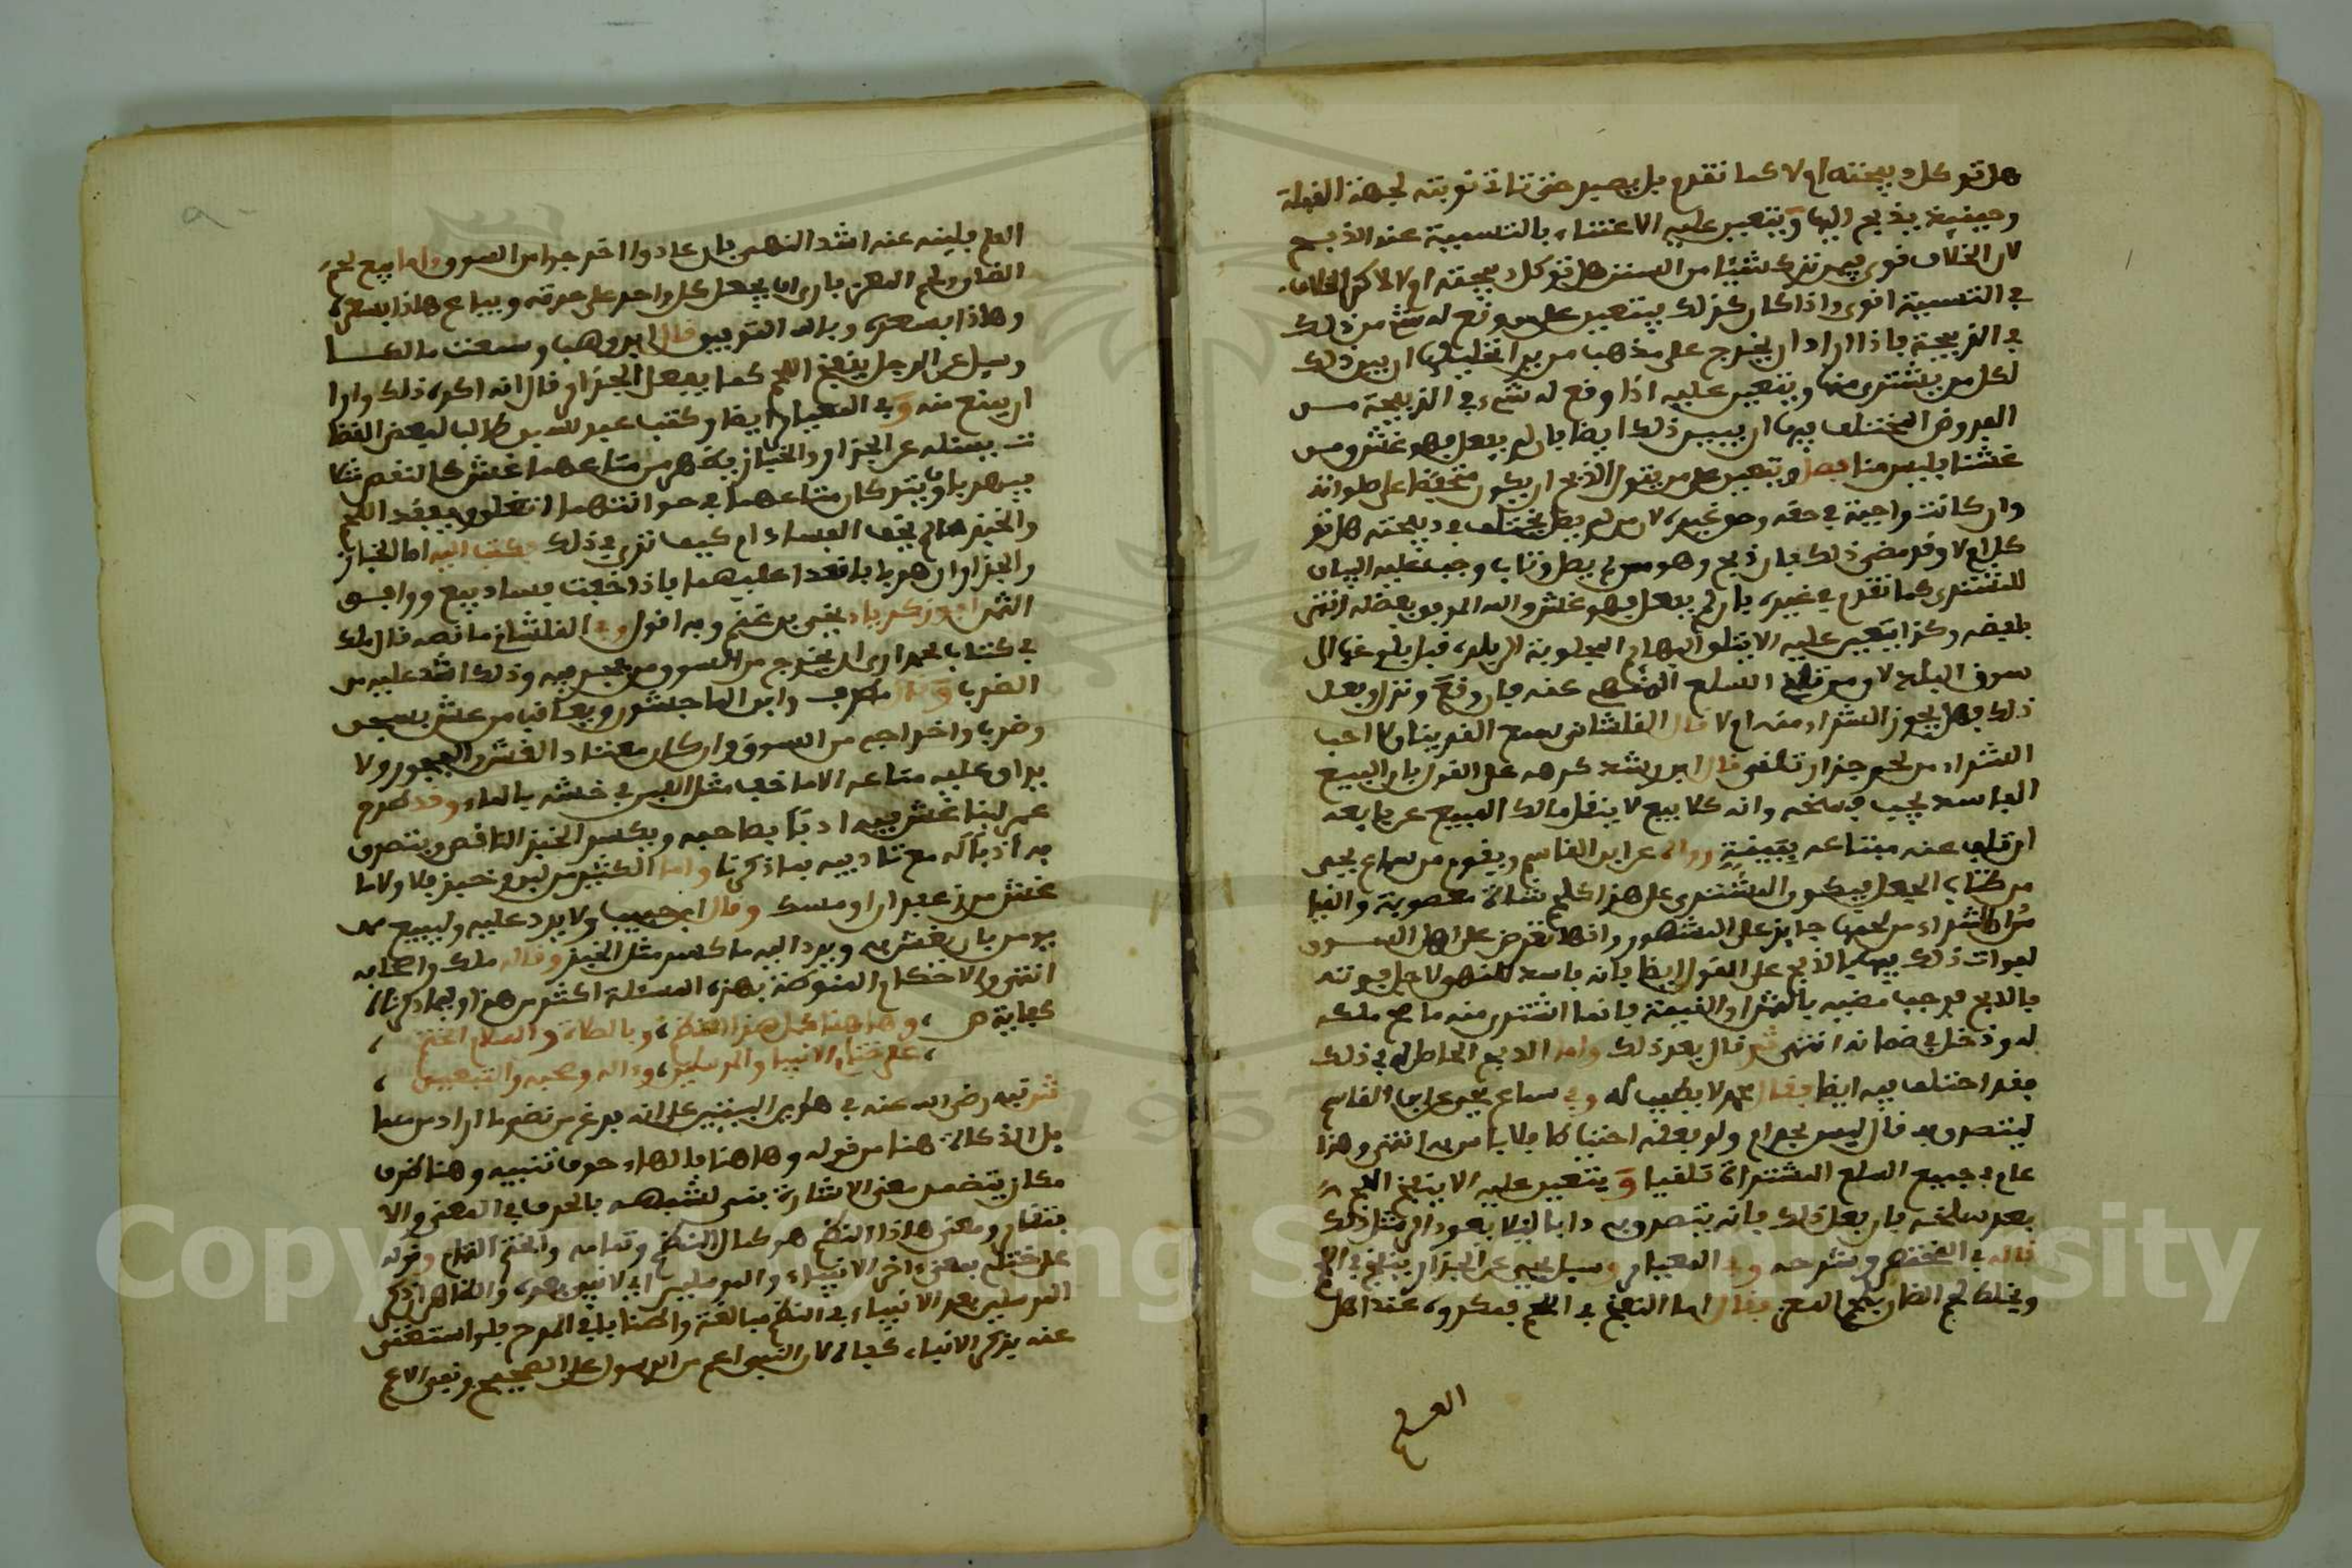 هل توكل ذبيحته ام لا كما تقدم بل يصير حتى تتاتى توبته لجهة القبلة
وحينئذ يذبح اليها ويتعين عليه الاعتناء بالتسمية عند الذبح
لان الخلاف قوي فيمن ترك شيئا من السنن هل توكل ذبيحته ام لا لاكن الخلاف
في التسمية اقوى واذا كان كذلك فيتعين على من وقع له شيء من ذلك
في الذبيحة فاذا اراد ان يخرج على مذهب من يرا تحليلها ان يبين ذلك
لكل من يشتري منها ويتعين عليه اذا وقع له شيء في الذبيحة من
العروض المختلف فيها ان يبين ذلك ايضا فان لم يفعل فهو غش ومن
غشنا فليس منا فصل ويتعين على من يتولى الذبح ان يكون متحفظا على صلواته
وان كانت واجبة في حقه وحق غيره لان من لم يصل يختلف في ذبيحته هل تو
كل ام لا وقد مضى ذلك فان ذبح وهو ممن لم يصل وتاب وجب عليه البيان
للمشتري كما تقدم في غيره فان لم يفعل فهو غش والله الموفق بفضله انتهى
بلفضه وكذا يتعين عليه الا يتلقى البهائم المجلوبة الى بلده قبل بلوغها الى
سوق البلد لانه من تلقي السلع المنهي عنه فان وقع ونزل وفعل
ذلك فهل يجوز الشراء منه ام لا قال القلشاني سمع القرينان لا احب
الشراء من لحم جزار تلقى قال ابن رشد كرهه على القول بان البيع
الفاسد يجب فسخه وانه كلا بيع لا ينقل مالك المبيع عن بايعه
ان تلف عند مبتاعه ببينة رواه عن ابن القاسم ويقوم من سماع يحيى
من كتاب الجعل فيكون المشتري على هذا كلحم شاة مغصوبة والقيا
س ان الشراء من لحمها جايز على المشهور وانها تعرض على اهل السوق
لفوات ذلك فيها بالذبح على القول ايضا بانه فاسد للنهي لاجل فوته
بالذبح فوجب مضيه بالثمن او القيمة فانما اشترى منه ما صح ملكه
له ودخل في ضمانه انتهى ثم قال بعد ذلك واما الربح الحاصل له في ذلك
فقد اختلف فيه ايضا فقال محمد لا يطيب له وفي سماع يحيى عن ابن القاسم
ليتصدق به قال ليس بحرام ولو فعله احتياطا فلا باس به انتهى وهذا
عام في جميع السلع المشتراة تلقيا ويتعين عليه الا ينفخ اللحم
بعد سلخه فان فعل ذلك فانه يتصدق به دابا ليلا يعود الى مثل ذلك
قاله في المختصر وشرحه وفي المعيار وسيل يحيى عن الجزار ينفخ في اللحم
ويخلط لحم الضان بلحم المعز فقال اما النفخ في اللحم فمكروه عند اهل
العلم
العلم فلينه عنه اشد النهي فان عادوا اخرجوا من السوق واما بيع لحم
الضان ولحم المعز فارى ان يجعل كل واحد على حدته ويباع هاذا بسعره
وهاذا بسعره وبالله التوفيق قال ابن وهب وسمعت مالكا
وسيل عن الرجل ينفخ اللحم كما يفعل الجزار قال انه اكره ذلك وارا
ان يمنع منه وفي المعيار ايضا وكتب عبد الله بن طالب لبعض القضا
ت بمسئلة عن الجزار والخباز يظهر من متاعهما غش كالنقص مثلا
فيهربا ويتركان متاعهما في حوانتهما اتغلق ويفقد اللحم
والخبز هل لم يخف الفساد ام كيف ترى في ذلك فكتب اليه اما الخباز
والجزار ان هربا فانعدا عليهما فاذا خفت فسادا بيع ووافق
الثمن ابو زكرياء يحيى بن عمر وبه اقول وفي القلشاني ما نصه قال ملك
في كتاب محمد ارى ان يخرج من السوق من فجر فيه وذلك اشد عليه من
الضرب وقال مطرف وابن الماجشون ويعاقب من غش بسجن
وضرب واخراجه من السوق وان كان معتاد الغش والفجور ولا
يراق عليه متاعه الا ما خف مثل اللبن في غشه بالماء وقد طرح
عمر لبنا غش فيه ادبا بصاحبه ويكسر الخبز الناقص ويتصدق
به ادبا له مع تاديبه بما ذكرنا واما الكثير من لبن وخبز فلا ولا ما
غش من زعفران او مسك وقال ابن حبيب ولا يرد عليه وليبيع ممن
يومن بان يغش به ويرد اليه ما كسر مثل الخبز وقاله ملك واصحابه
انتهى والاحكام المنوطة بهذه المسئلة اكثر من هذا وفيما ذكرناه
كفاية ص وهاهنا كمل هذا النظم وبالصلاة والسلام الختم
على ختام الانبيا والمرسلين واله وصحبه والتبعين
ش نبه رضي الله عنه في هاذين البيتين على انه فرغ من نظم ما اراد من مسا
يل الذكاة هنا من قوله وهاهنا بالهاء حرف تنبيه وهنا ظرف
مكان يتضمن معنى الاشارة بنى لشبهه بالحرف في المعنى والا
فتقار ومعنى هاذا النظم هو كمال النظم وتمامه والختم التمام وقوله
على ختام بمعنى اخر الانبياء والمرسلين اي لا نبي بعده والظاهر ان ذكر
المرسلين بعد الانبياء في النظم مبالغة واطناب في المدح فلو استغنى
عنه بذكر الانبياء كفاه لان النبي اعم من الرسول على الصحيح ونفي الاعم